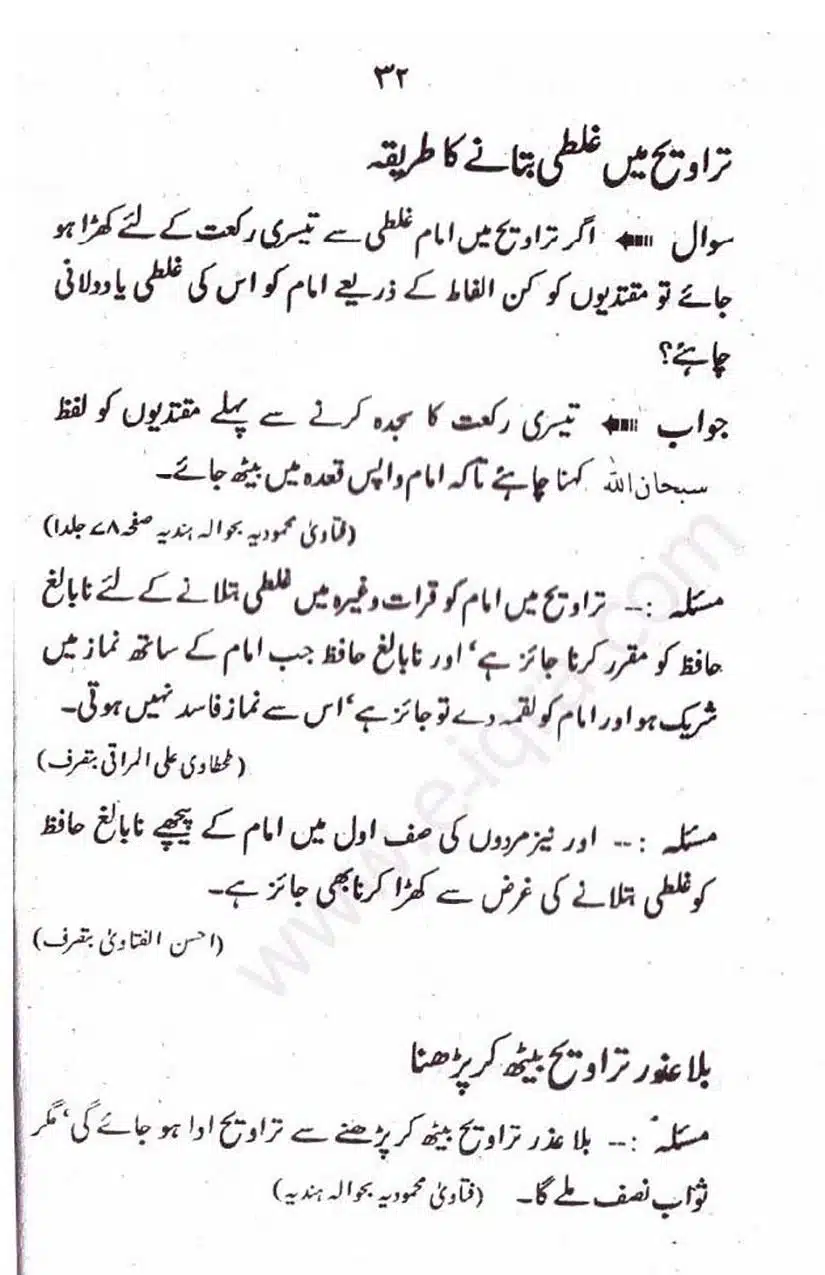 ۳۲
تراویح میں غلطی بتانے کا طریقہ
سوال ⬅ اگر تراویح میں امام غلطی سے تیسری رکعت کے لئے کھڑا ہو
جائے تو مقتدیوں کو کن الفاط کے ذریعے امام کو اس کی غلطی یاددلانی
چاہئے؟
جواب ⬅ تیسری رکعت کا سجدہ کرنے سے پہلے مقتدیوں کو لفظ
سبحان اللہ کہنا چاہئے تاکہ امام واپس قعدہ میں بیٹھ جائے۔
(فتاویٰ محمودیہ بحوالہ ہندیہ صفحہ ۷۸ جلد۱)
مسئلہ :-- تراویح میں امام کو قرات وغیرہ میں غلطی بتلانے کے لئے نابالغ
حافظ کو مقرر کرنا جائز ہے‘ اور نابالغ حافظ جب امام کے ساتھ نماز میں
شریک ہو اور امام کو لقمہ دے تو جائز ہے‘ اس سے نماز فاسد نہیں ہوتی۔
(طحطاوی علی المراقی بتصرف)
مسئلہ :-- اور نیز مردوں کی صف اول میں امام کے پیچھے نابالغ حافظ
کو غلطی بتلانے کی غرض سے کھڑا کرنا بھی جائز ہے۔
(احسن الفتاویٰ بتصرف)
بلا عذر تراویح بیٹھ کر پڑھنا
مسئلہ :-- بلا عذر تراویح بیٹھ کر پڑھنے سے تراویح ادا ہو جائے گی‘ مگر
ثواب نصف ملے گا۔ (فتاویٰ محمودیہ بحوالہ ہندیہ)
www.e-iqra.com